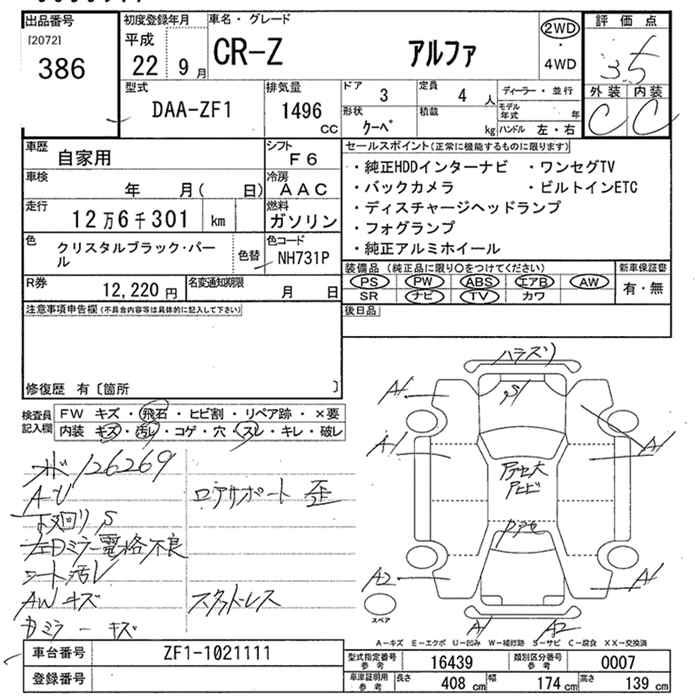 出品番号
[2072]
386
初度登録年月
平成
22 9 月
車名・グレード
CR-Z アルファ
2WD
・
4WD
評価点
3.5
外装 内装
C C
型式
DAA-ZF1
排気量
1496 cc
ドア 3
定員 4 人
形状 クーペ
積載 kg
ディーラー・並行
モデル年式 年
ハンドル 左・右
車歴
自家用
シフト
F6
車検
年 月( 日)
冷房
AAC
走行
12万6千301 km
燃料
ガソリン
色
クリスタルブラック・パール
色替
色コード
NH731P
R券
12,220 円
名変通知期限
月 日
セールスポイント(正常に機能するものに限ります)
・純正HDDインターナビ ・ワンセグTV
・バックカメラ ・ビルトインETC
・ディスチャージヘッドランプ
・フォグランプ
・純正アルミホイール
装備品(純正品に限り○をつけてください)
PS PW ABS エアB AW
SR ナビ TV カワ
新車保証書
有・無
後日品
注意事項申告欄(不具合内容等は具体的に記入して下さい)
修復歴 有〔箇所 〕
検査員記入欄
FW キズ・飛石・ヒビ割・リペア跡・×要
内装 キズ・汚レ・コゲ・穴・スレ・キレ・破レ
126269
A-U
ロアサポート 歪
下廻り S
左Dミラー電格不良
シート汚レ
AWキズ
スタットレス
ミラーキズ
S
A1
A1
A1
A1
A2
A1
A2
スペア
A-キズ E-エクボ U-凹み W-補修跡 S-サビ C-腐食 XX-交換済
車台番号
ZF1-1021111
登録番号
型式指定番号 参考
16439
類別区分番号 参考
0007
車庫証明用 参考
長さ 408 cm
幅 174 cm
高さ 139 cm